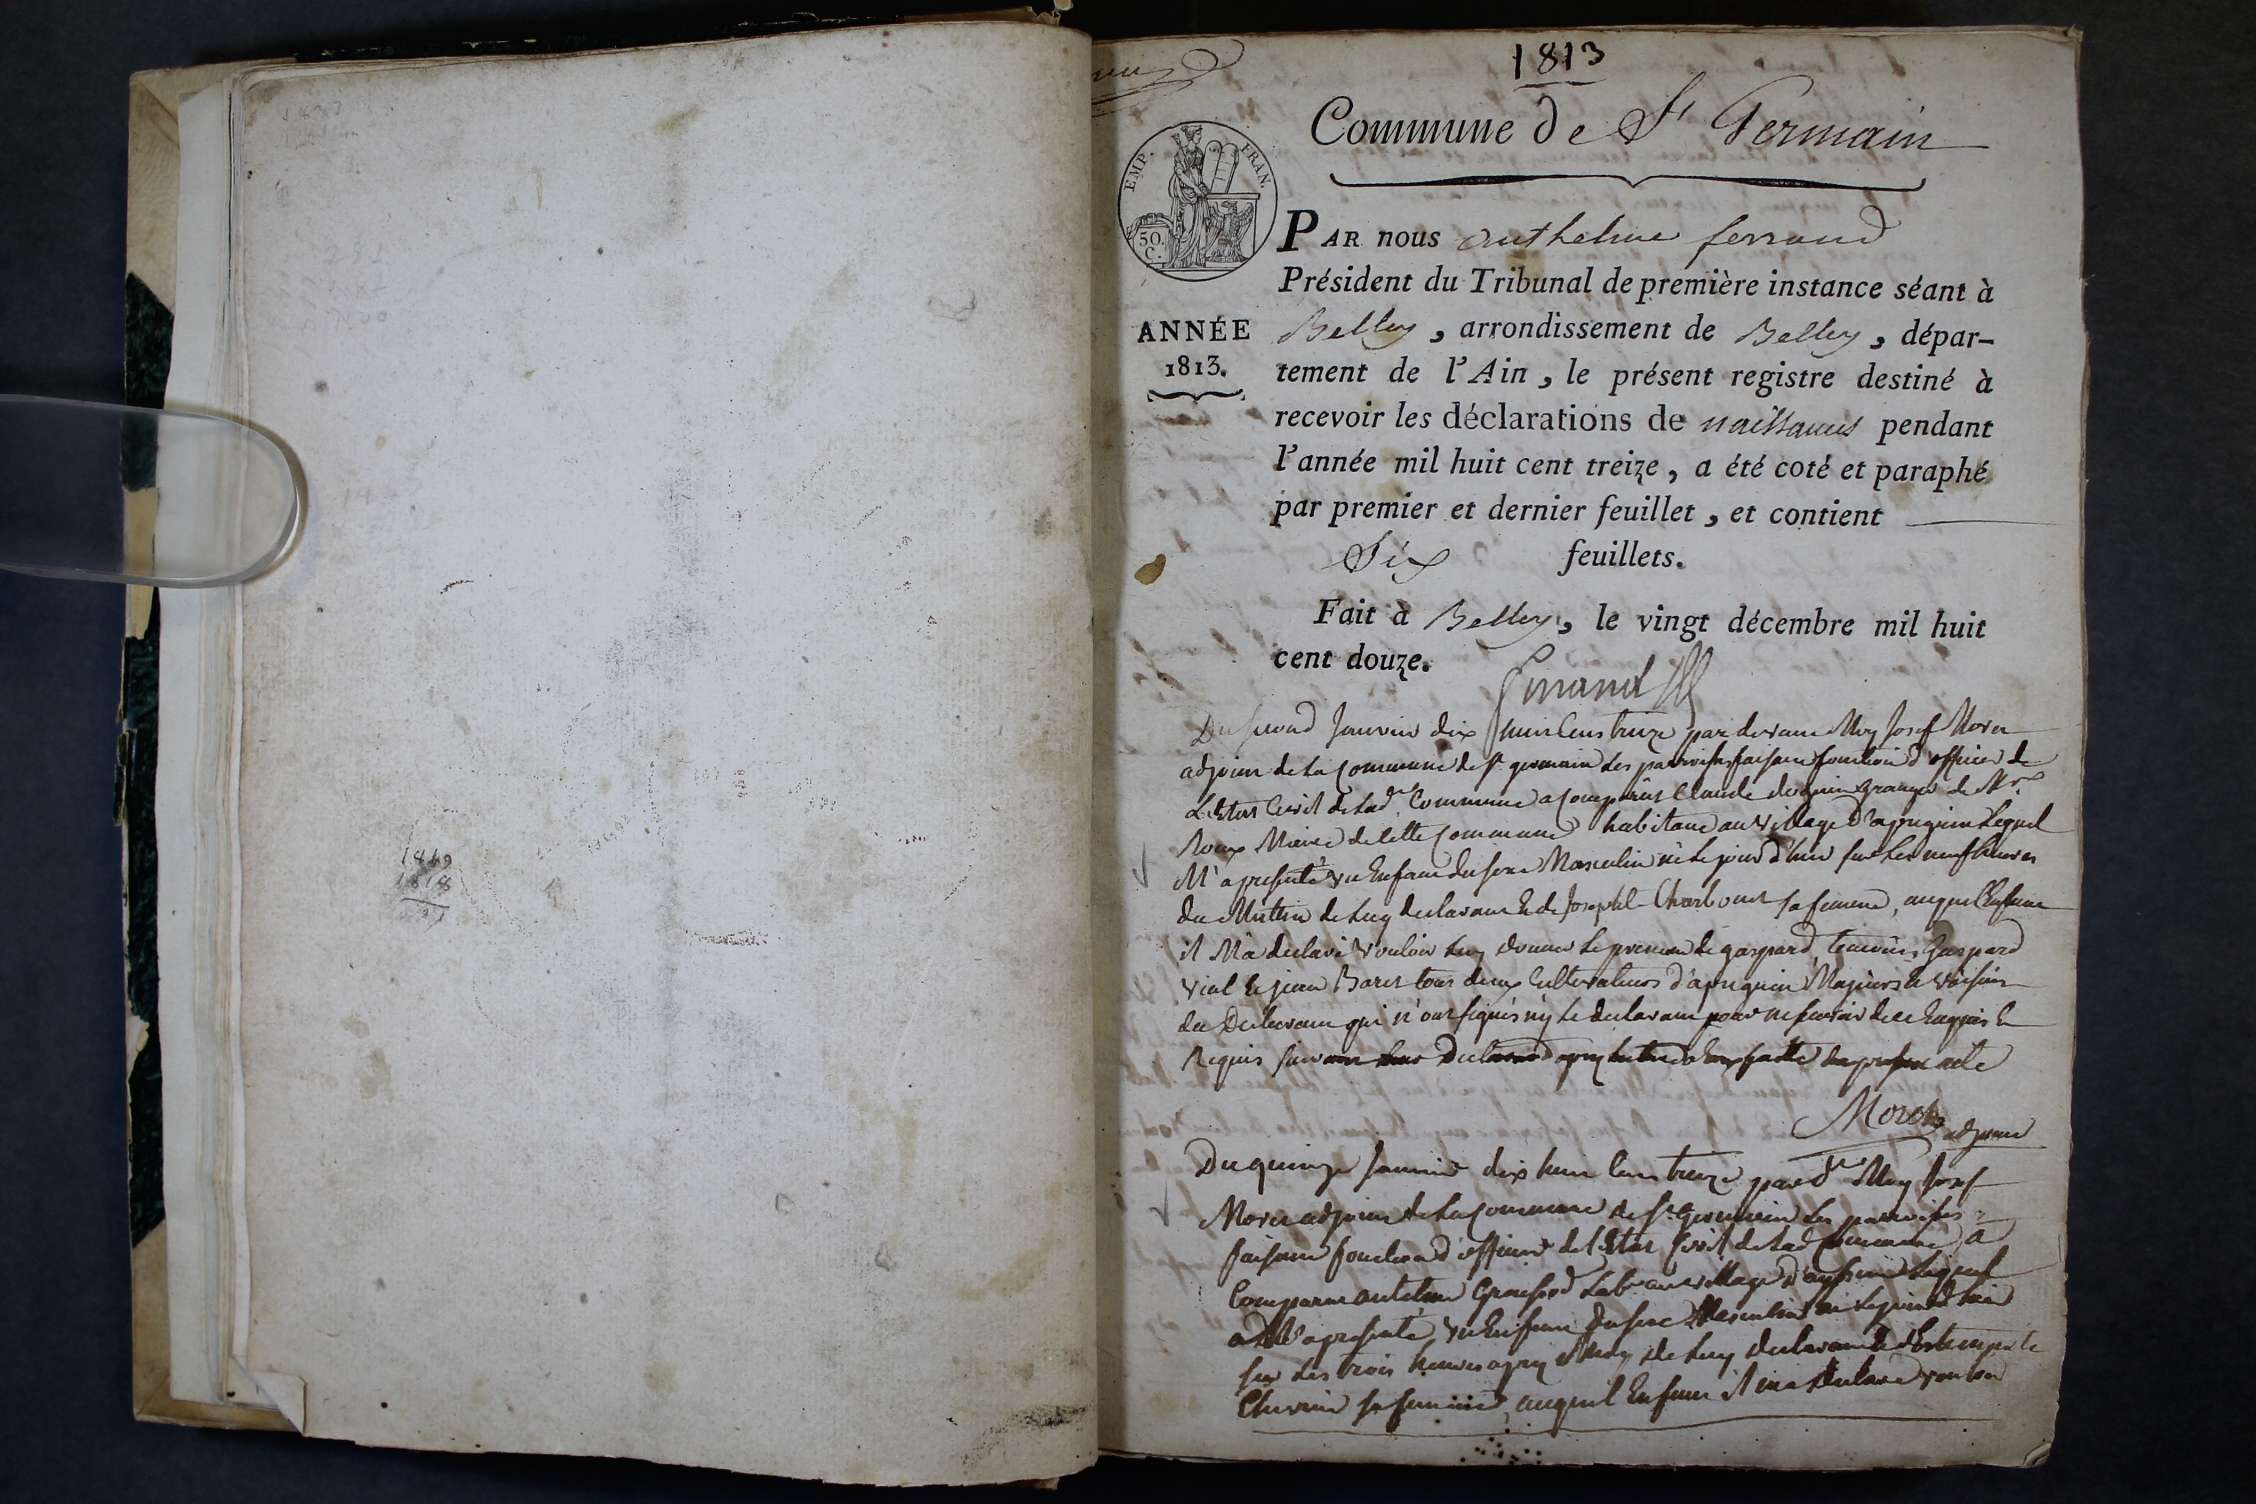 1849
1818
31
1813
Commune de St Germain
EMP. FRAN.
50.
C.
ANNÉE
1813.
PAR nous anthelme ferrand
Président du Tribunal de première instance séant à
Belley, arrondissement de Belley, dépar-
tement de l'Ain, le présent registre destiné à
recevoir les déclarations de naissances pendant
l'année mil huit cent treize, a été coté et paraphé
par premier et dernier feuillet, et contient
Six feuillets.
Fait à Belley, le vingt décembre mil huit
cent douze.
Ferrand
Du second Janvier dix huit Cens treize par devant Moy Josef Moret
adjoint de la Commune de St germain les parroisses faisant fonction d'officier de
L'Etat Civil de lad. Commune a Comparut Claude granger de Mr.
Roux Maire de cette Commune habitant au village d'apregnin Lequel
M'a presenté un Enfant du sexe Masculin né le jour d'hier sur les neuf heures
du Mattin de luy declarant et de Josephte Charbonet sa femme, auquel Enfant
il M'a declaré vouloir luy donner le prenom de gaspard, temoins Gaspard
vial et jean Baret tous deux Cultivateurs d'apregnin Majeurs et voisins
du Declarant qui n'ont signés ny le declarant pour ne savoir de ce Enquis et
Requis acte
Moret adjoint
Du quinze Janvier dix huit Cens treize pard. Moy Josef
Moret adjoint de la Commune de St germain les parroisses
faisant fonction d'officier de l'Etat Civil de lad Commune a
Comparut antelme lab. au village Lequel
a M'a presenté un Enfant du sexe Masculin né le jour d'hier
sur les trois heures apres Midy de luy declarant et
sa femme, auquel Enfant il m'a declaré vouloir